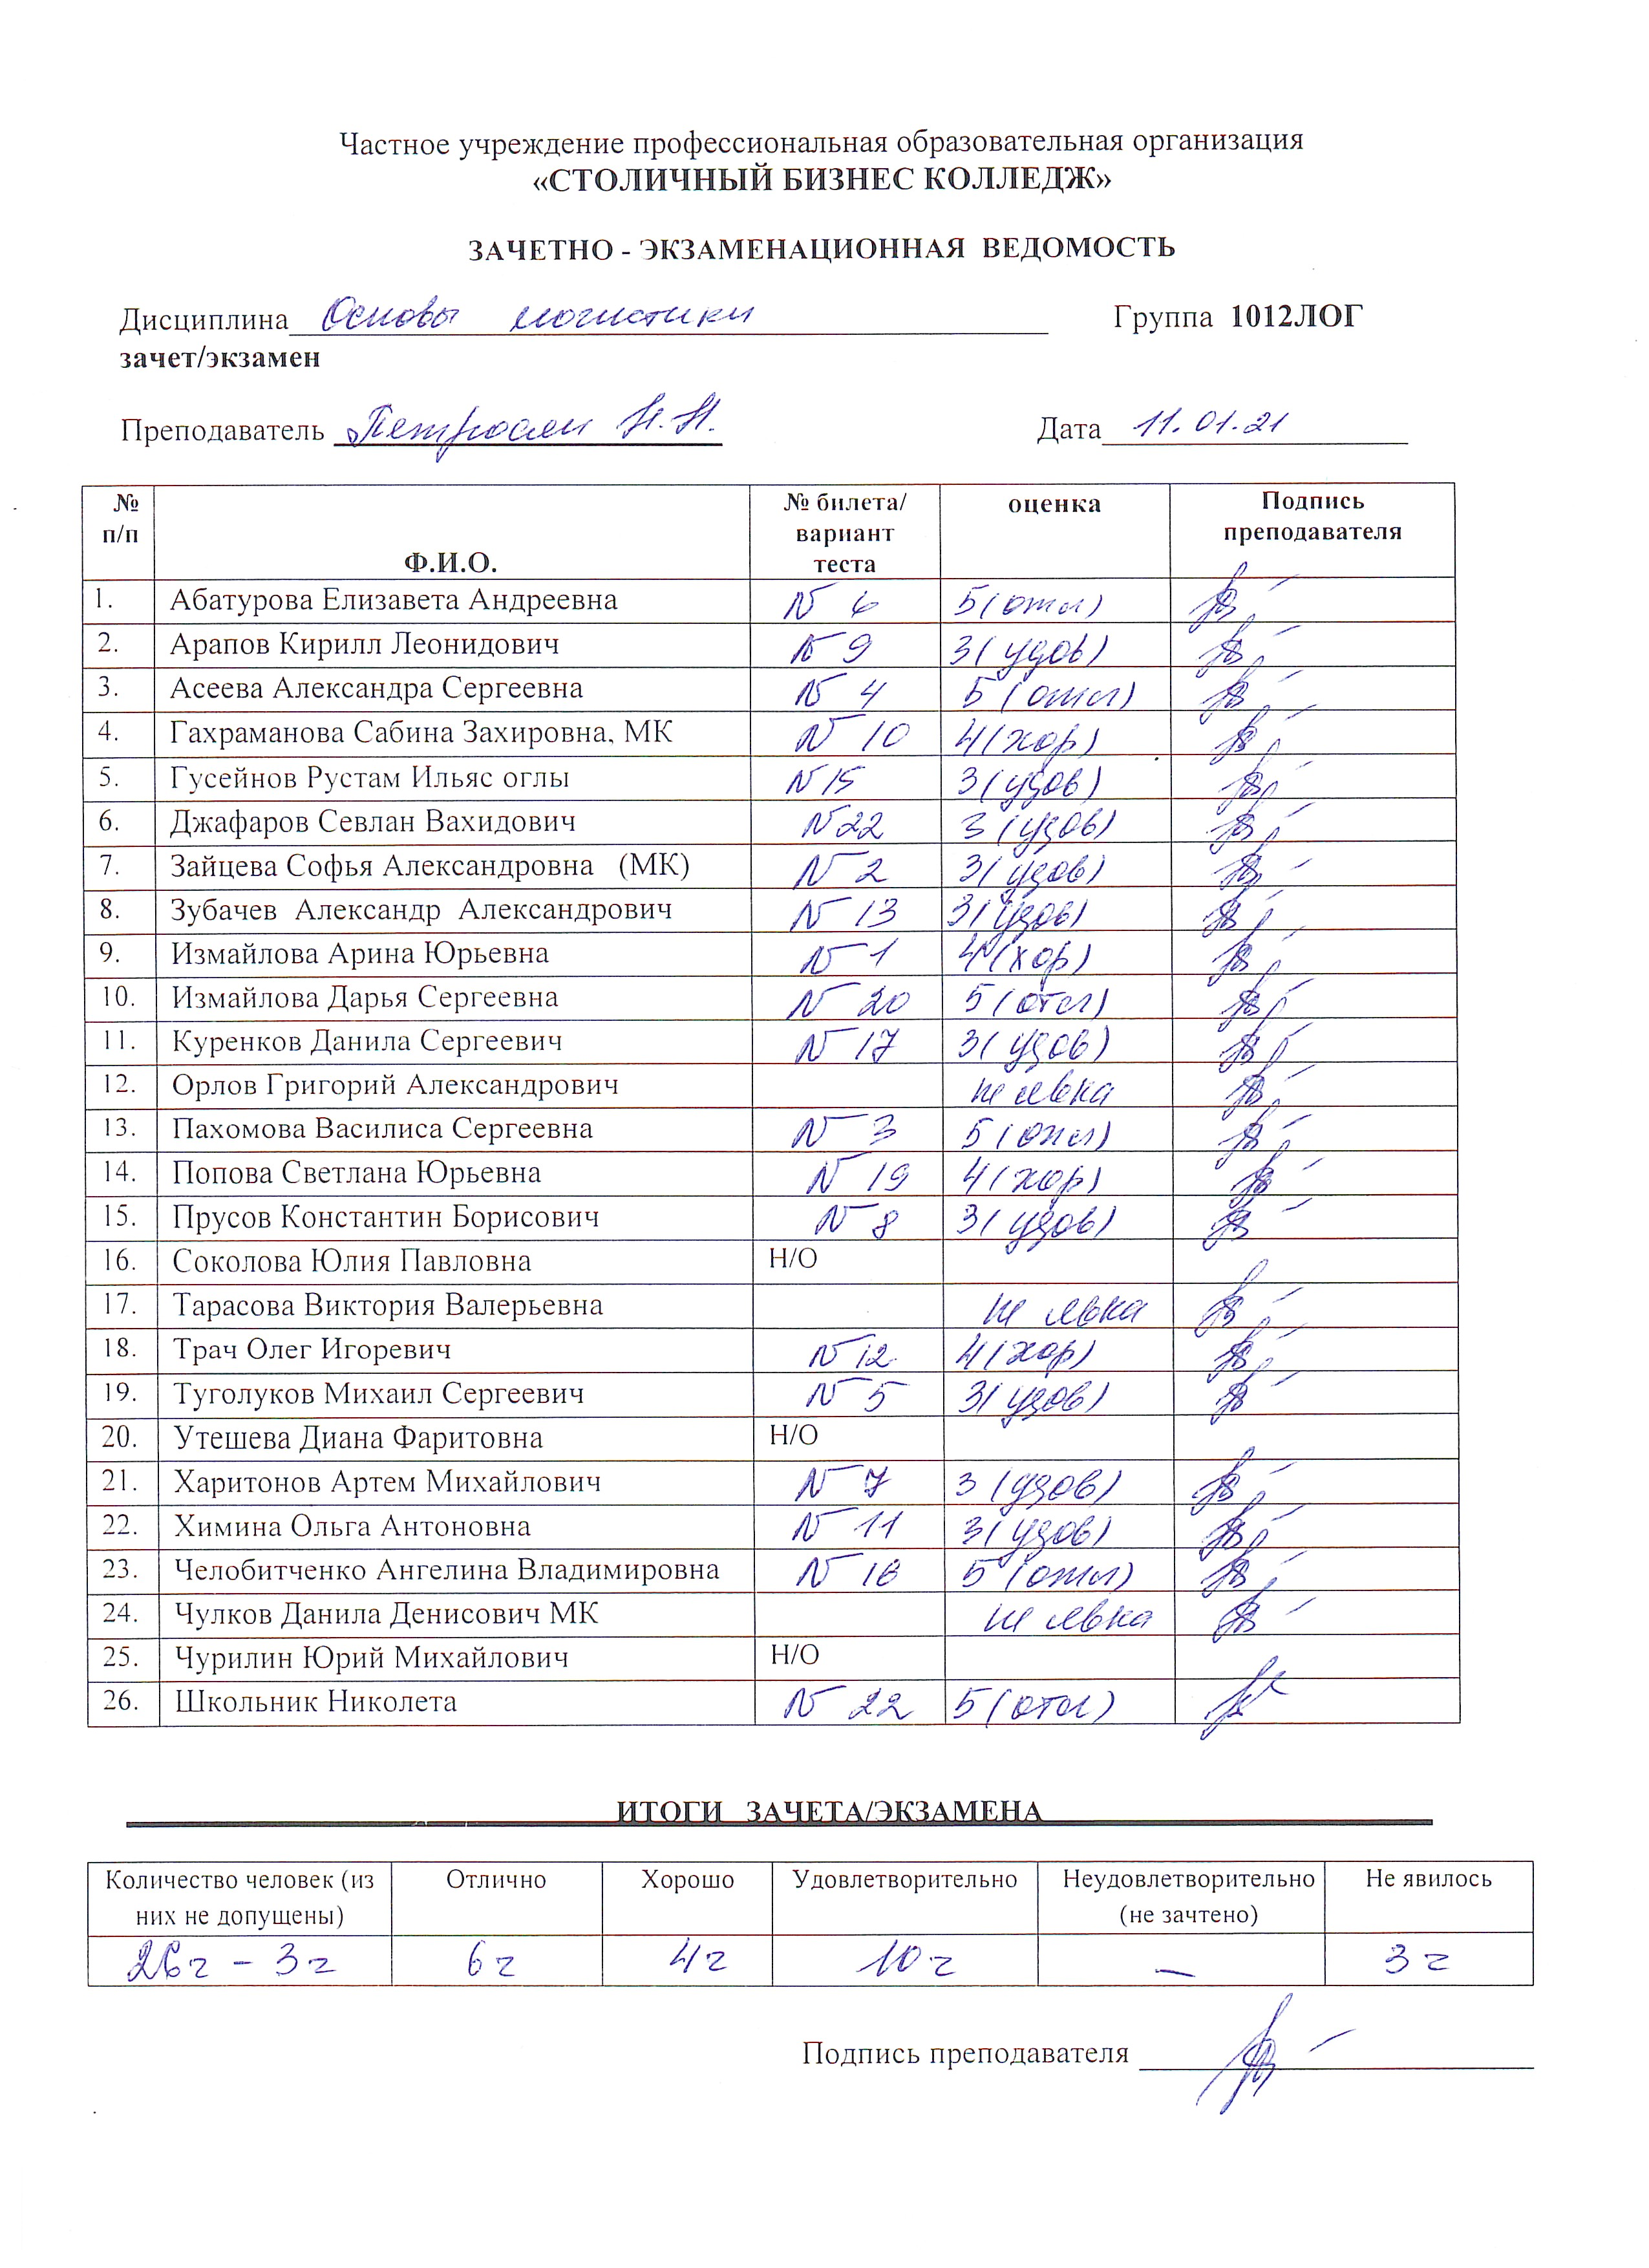 Частное учреждение профессиональная образовательная организация
«СТОЛИЧНЫЙ БИЗНЕС КОЛЛЕДЖ»
ЗАЧЕТНО - ЭКЗАМЕНАЦИОННАЯ ВЕДОМОСТЬ
Дисциплина Основы логистики Группа 1012ЛОГ
зачет/экзамен
Преподаватель Петросян Н.Н. Дата 11.01.21
№ п/п Ф.И.О. № билета/ вариант теста оценка Подпись преподавателя
1. Абатурова Елизавета Андреевна N 6 5(отл)
2. Арапов Кирилл Леонидович N 9 3(удов)
3. Асеева Александра Сергеевна N 4 5(отл)
4. Гахраманова Сабина Захировна, МК N 10 4(хор)
5. Гусейнов Рустам Ильяс оглы N 15 3(удов)
6. Джафаров Севлан Вахидович N 22 3(удов)
7. Зайцева Софья Александровна (МК) N 2 3(удов)
8. Зубачев Александр Александрович N 13 3(удов)
9. Измайлова Арина Юрьевна N 1 4(хор)
10. Измайлова Дарья Сергеевна N 20 5(отл)
11. Куренков Данила Сергеевич N 17 3(удов)
12. Орлов Григорий Александрович не явка
13. Пахомова Василиса Сергеевна N 3 5(отл)
14. Попова Светлана Юрьевна N 19 4(хор)
15. Прусов Константин Борисович N 8 3(удов)
16. Соколова Юлия Павловна Н/О
17. Тарасова Виктория Валерьевна не явка
18. Трач Олег Игоревич N 12 4(хор)
19. Туголуков Михаил Сергеевич N 5 3(удов)
20. Утешева Диана Фаритовна Н/О
21. Харитонов Артем Михайлович N 7 3(удов)
22. Химина Ольга Антоновна N 11 3(удов)
23. Челобитченко Ангелина Владимировна N 18 5(отл)
24. Чулков Данила Денисович МК не явка
25. Чурилин Юрий Михайлович Н/О
26. Школьник Николета N 22 5(отл)
ИТОГИ ЗАЧЕТА/ЭКЗАМЕНА
Количество человек (из них не допущены) Отлично Хорошо Удовлетворительно Неудовлетворительно (не зачтено) Не явилось
26ч - 3ч 6ч 4ч 10ч — 3ч
Подпись преподавателя